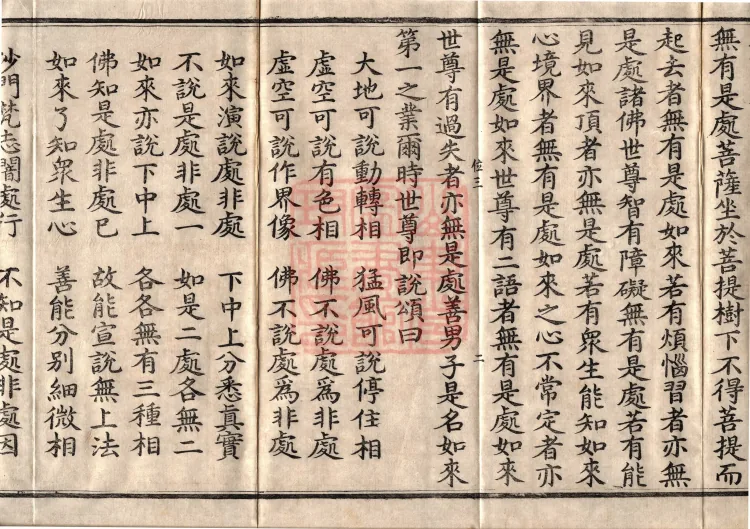 無有是處菩薩坐於菩提樹下不得菩提而
起去者無有是處如來若有煩惱習者亦無
是處諸佛世尊智有障礙無有是處若有能
見如來頂者亦無是處若有衆生能知如來
心境界者無有是處如來之心不常定者亦
無是處如來世尊有二語者無有是處如來
位三 二
世尊有過失者亦無是處善男子是名如來
第一之業爾時世尊即說頌曰
大地可說動轉相 猛風可說停住相
虛空可說有色相 佛不說處爲非處
虛空可說作界像 佛不說處爲非處
如來演說處非處 下中上分悉真實
不說是處非處一 如是二處各無二
如來亦說下中上 各各無有三種相
佛知是處非處已 故能宣說無上法
如來了知衆生心 善能分别細微相
沙門梵志闇處行 不知是處非處因